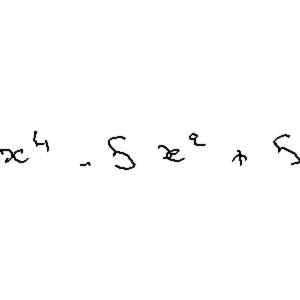 x⁴ - 5x² + 5